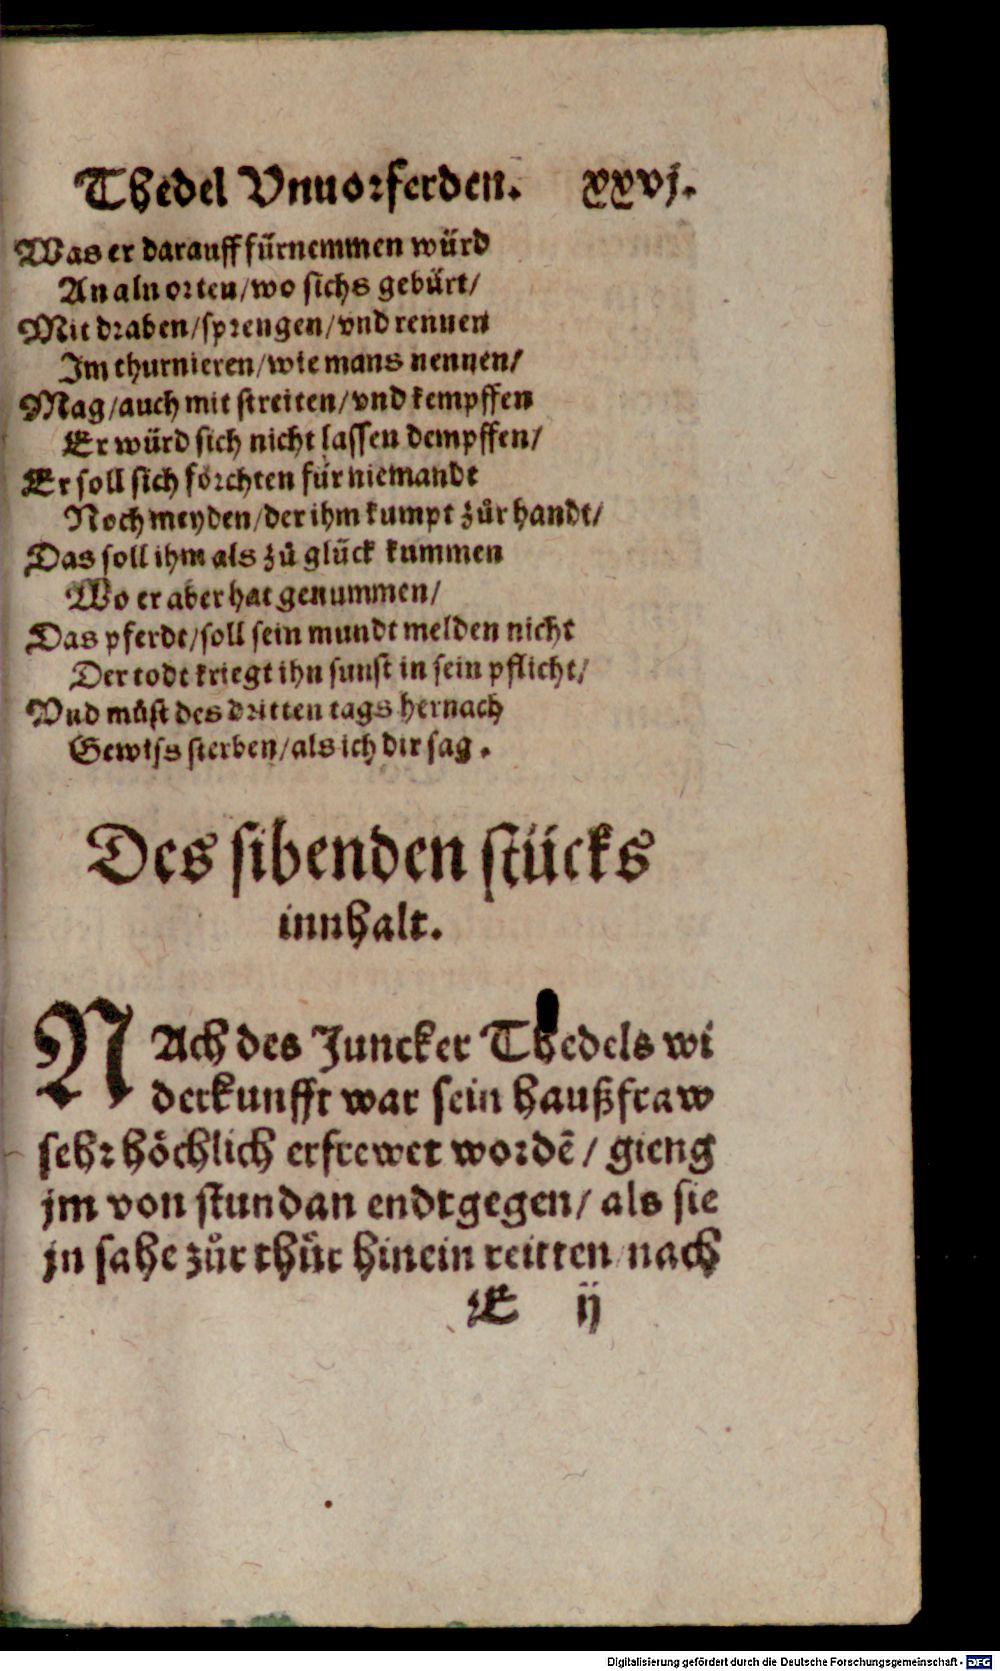 Thedel Vnuorferden. xxvj.
Was er darauff fürnemmen würd
An aln orten/wo sichs gebürt/
Mit draben/sprengen/vnd rennen
Im thurnieren/wie mans nennen/
Mag/auch mit streiten/vnd kempffen
Er würd sich nicht lassen dempffen/
Er soll sich förchten für niemandt
Noch meyden/der ihm kumpt zůr handt/
Das soll ihm als zů glück kummen
Wo er aber hat genummen/
Das pferdt/soll sein mundt melden nicht
Der todt kriegt ihn sunst in sein pflicht/
Vnd můst des dritten tags hernach
Gewiss sterben/als ich dir sag.
Des sibenden stücks
innhalt.
NAch des Juncker Thedels wi
derkunfft war sein haußfraw
sehr höchlich erfrewet wordē/ gieng
jm von stundan endtgegen/ als sie
jn sahe zůr thür hinein reitten/nach
E ij
Digitalisierung gefördert durch die Deutsche Forschungsgemeinschaft - DFG